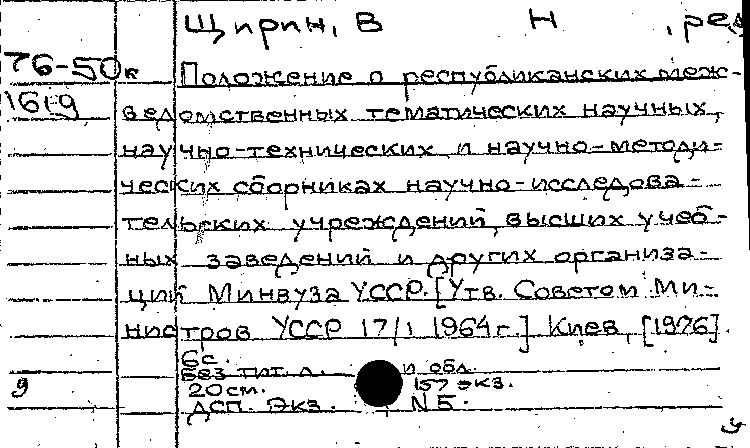 Щирин, В Н , ред
76-50к
1619
Положение о республиканских меж-
ведомственных тематических научных,
научно-технических и научно-методи-
ческих сборниках научно-исследова-
тельских учреждений, высших учеб-
ных заведений и других организа-
ций Минвуза УССР. [Утв. Советом Ми-
нистров УССР 17/I 1964г.] Киев, [1976].
6с.
без тит. л. и обл.
20см. 157 экз.
ДСП. Экз. N5.
9